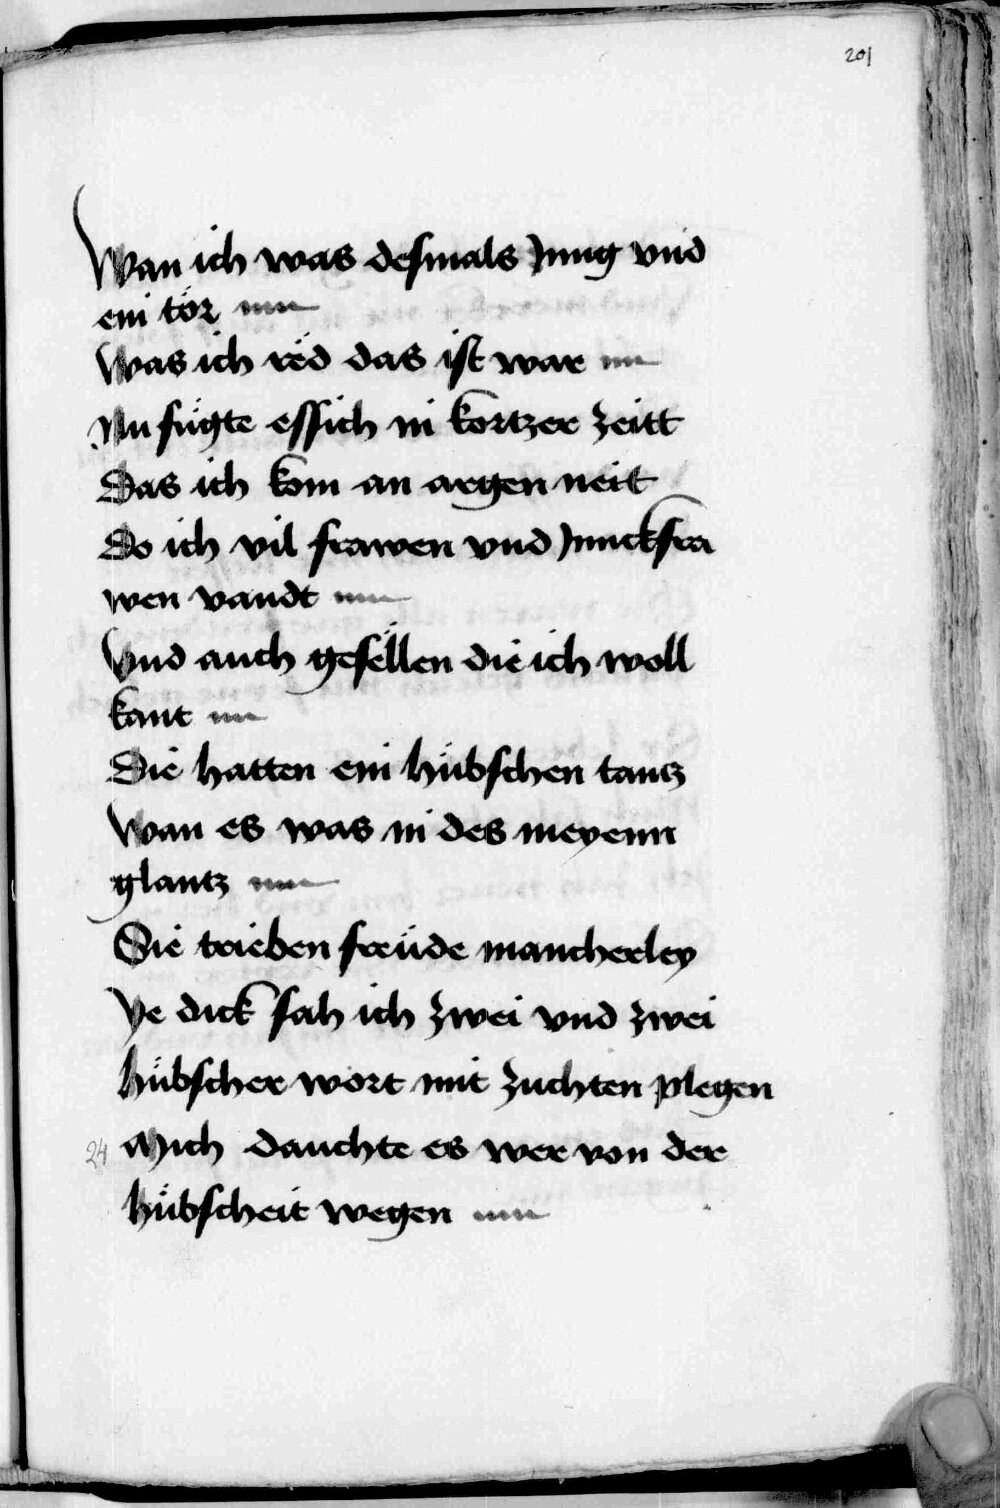 201
Wan ich was desmals Jung vnd
ein tör
Was ich rëd das ist war
Nu fügte essich in kortzer zeitt
Das ich kom an argen neit
Do ich vil frawen vnd Junckfra
wen vandt
Vnd auch gesëllen die ich woll
kant
Die hatten ein hübschen tantz
Wan es was in des meyenn
glantz
Sie trieben freüde mancherley
Ye dick sah ich zwei vnd zwei
hübscher wort mit zuchten plegen
24 Mich dauchte es wer von der
hübscheit wegen